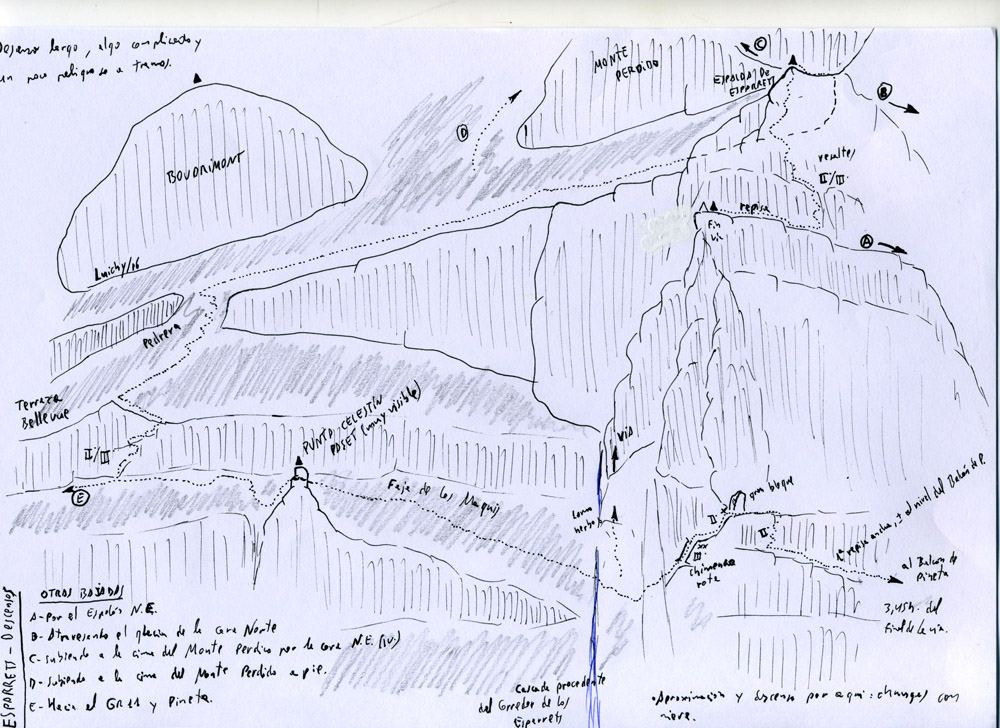 Descenso largo, algo complicado y
un poco peligroso a tramos.
MONTE
PERDIDO
C
ESPALDA DE
ESPARRETS
B
D
BOUDRIMONT
resaltes
II/III
repisa
Fin
vía
A
Luichy/16
Pedrera
Terraza
Bellevue
II/III
PUNTO CELESTÍN
PASSET (muy visible)
VIA
E
Faja de los Maquis
gran bloque
II
II
III
xx
chimenea
rota
1ª repisa ancha, ± al nivel del Balcón de P.
al Balcón de
Pineta
3,45h. del
final de la vía.
ESPARRETS - Descensos
OTRAS BAJADAS
A- Por el Espolón N.E.
B- Atravesando el glaciar de la Cara Norte
C- Subiendo a la cima del Monte Perdido por la cara N.E.
D- Subiendo a la cima del Monte Perdido a pie.
E- Hacia el GR11 y Pineta.
Cascada procedente
del Corredor de los
Esparrets
• Aproximación y descenso por aquí: chungas con
nieve.